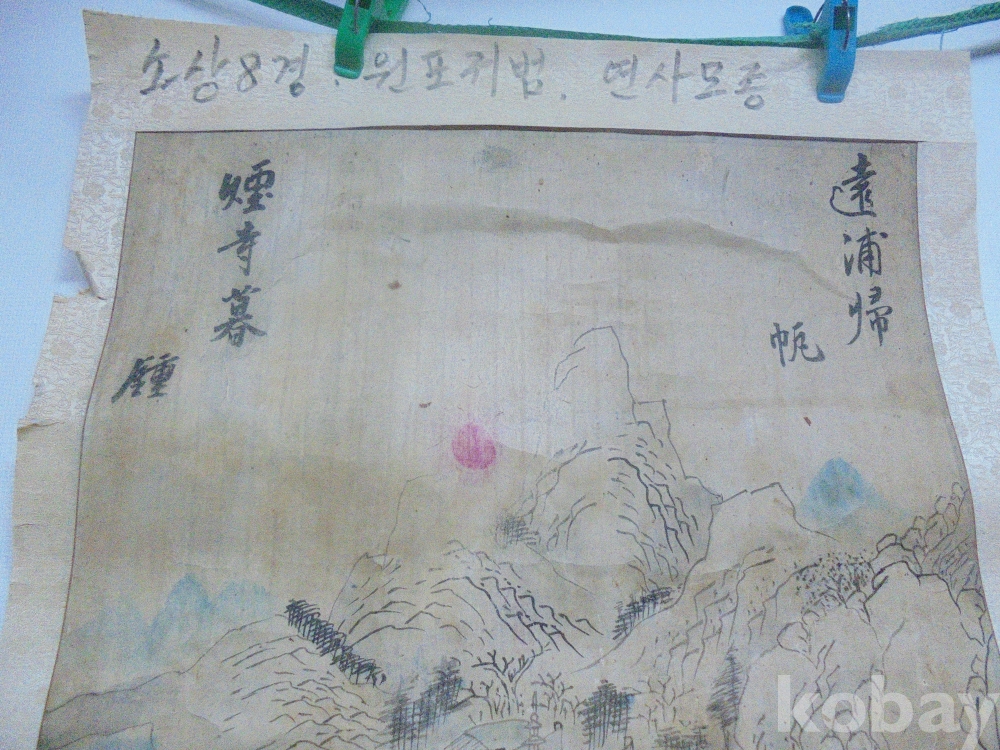 소상8경. 원포귀범. 연사모종
遠浦帰
帆
煙寺暮
鍾
kobay